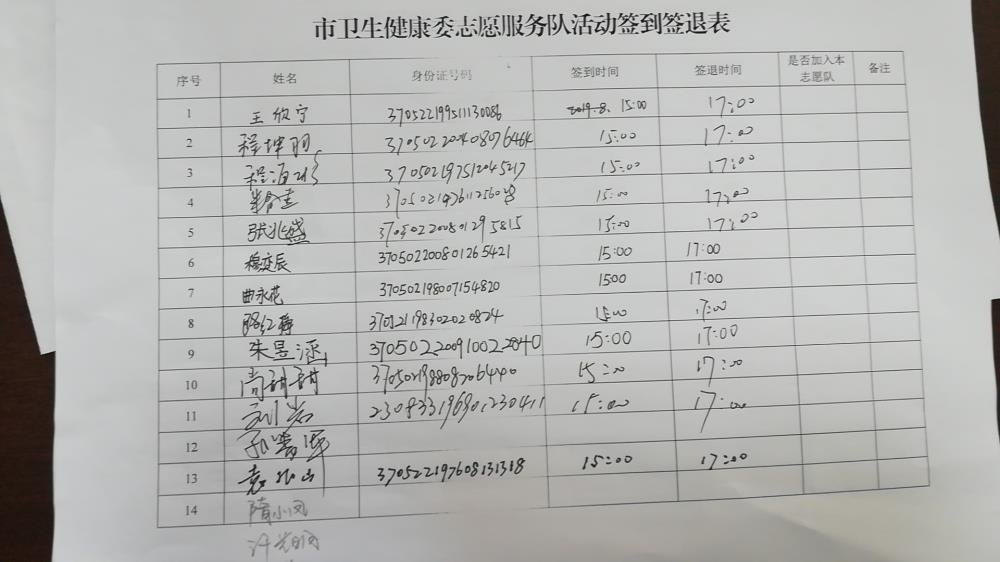 市卫生健康委志愿服务队活动签到签退表
序号 姓名 身份证号码 签到时间 签退时间 是否加入本志愿队 备注
1 王欣宁 370522199511130086 15:00 17:00
2 程坤羽 370502200408076464 15:00 17:00
3 370502197512045217 15:00 17:00
4 15:00 17:00
5 张兆盛 370502200801295815 15:00 17:00
6 穆奕辰 370502200801265421 15:00 17:00
7 曲永花 370502198007154820 1500 17:00
8 15:00 17:00
9 朱昱涵 370502200910022840 15:00 17:00
10 尚甜甜 370502198808206440 15:00 17:00
11 刘岩 230833196901230411 15:00 17:00
12
13 370522197608131318 15:00 17:00
14 隋小凤